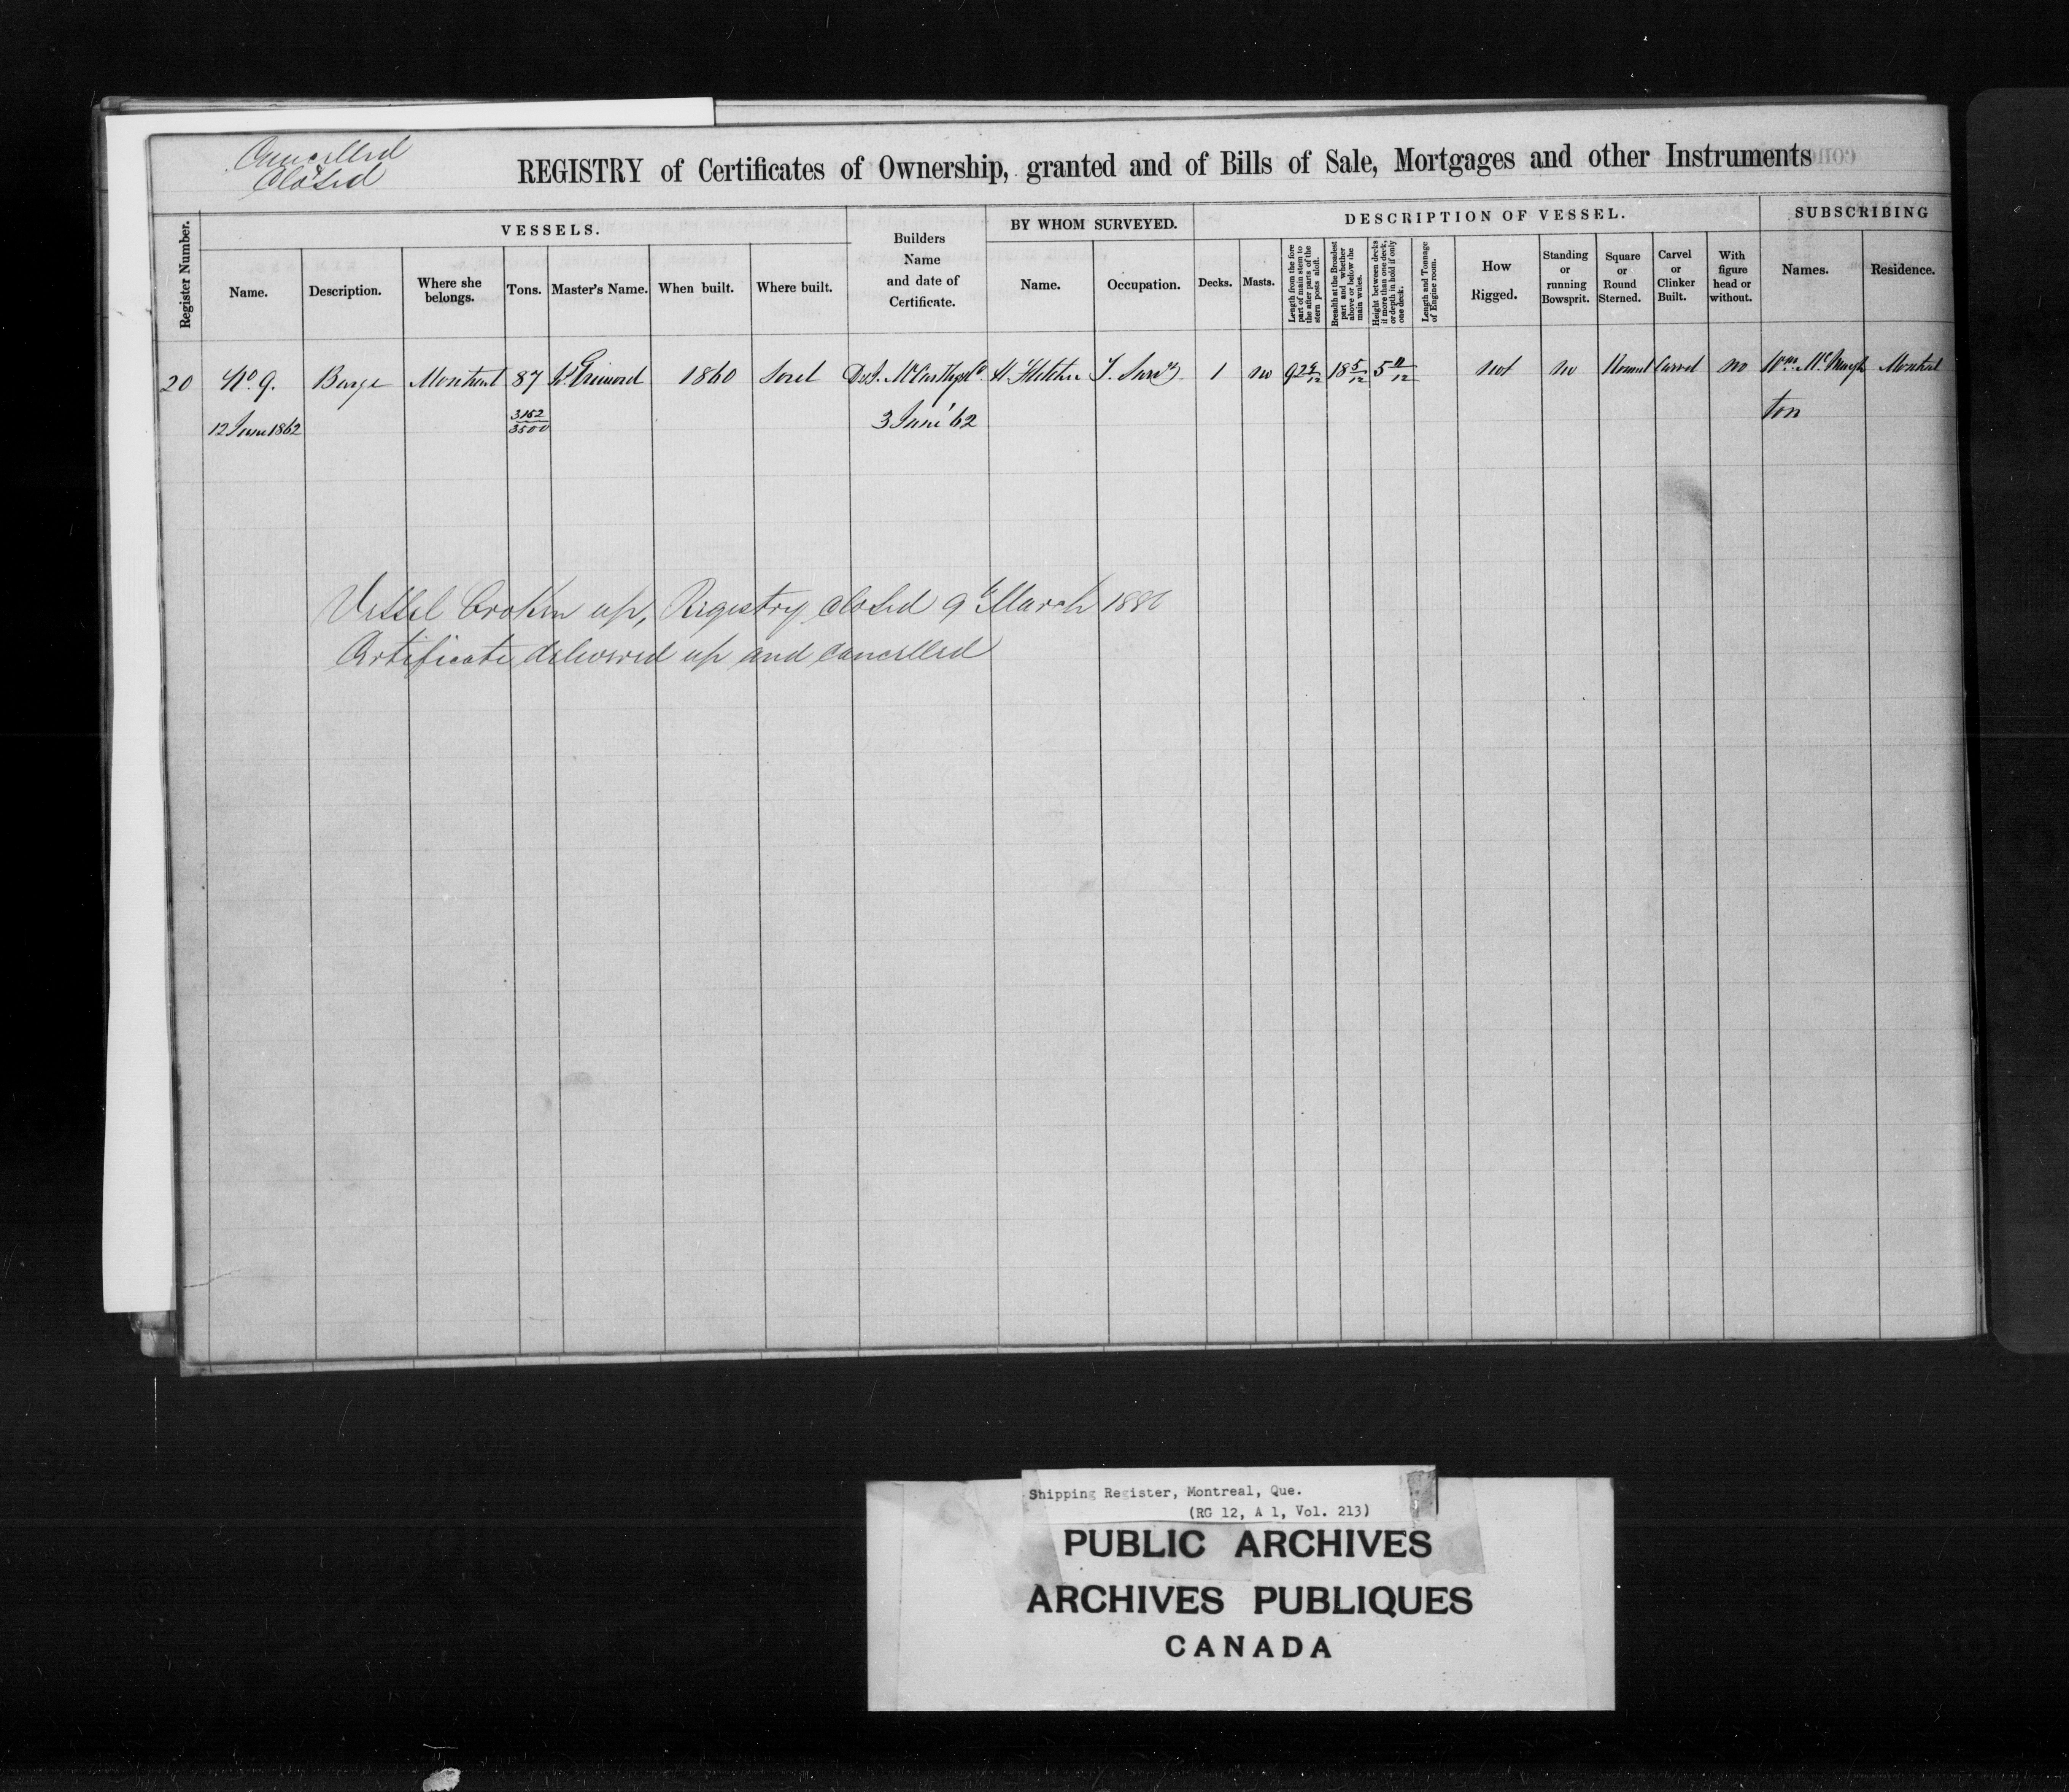 Cancelled
Closed
REGISTRY of Certificates of Ownership, granted and of Bills of Sale, Mortgages and other Instruments
Register Number.
VESSELS.
Name.
Description.
Where she belongs.
Tons.
Master's Name.
When built.
Where built.
Builders Name and date of Certificate.
BY WHOM SURVEYED.
Name.
Occupation.
DESCRIPTION OF VESSEL.
Decks.
Masts.
Length from the fore part of main stem to the after parts of the stern posts aloft.
Breadth at the Broadest part and whether above or below the main wales.
Height between decks if more than one deck, or depth in hold if only one deck.
Length and Tonnage of Engine room.
How Rigged.
Standing or running Bowsprit.
Square or Round Sterned.
Carvel or Clinker Built.
With figure head or without.
SUBSCRIBING
Names.
Residence.
20 No 9. Barge Montreal 87 1860 Sorel D & J. McCarthy H. Fletcher T. Surv 1 no 92 18 5/12 5 11/12 not no Round Carvel no Wm McNaugh Montreal
12 June 1862 3152/3500 3 June '62 ton
Vessel broken up, Registry closed 9th March
Certificate delivered up and cancelled
Shipping Register, Montreal, Que.
(RG 12, A 1, Vol. 213)
PUBLIC ARCHIVES
ARCHIVES PUBLIQUES
CANADA